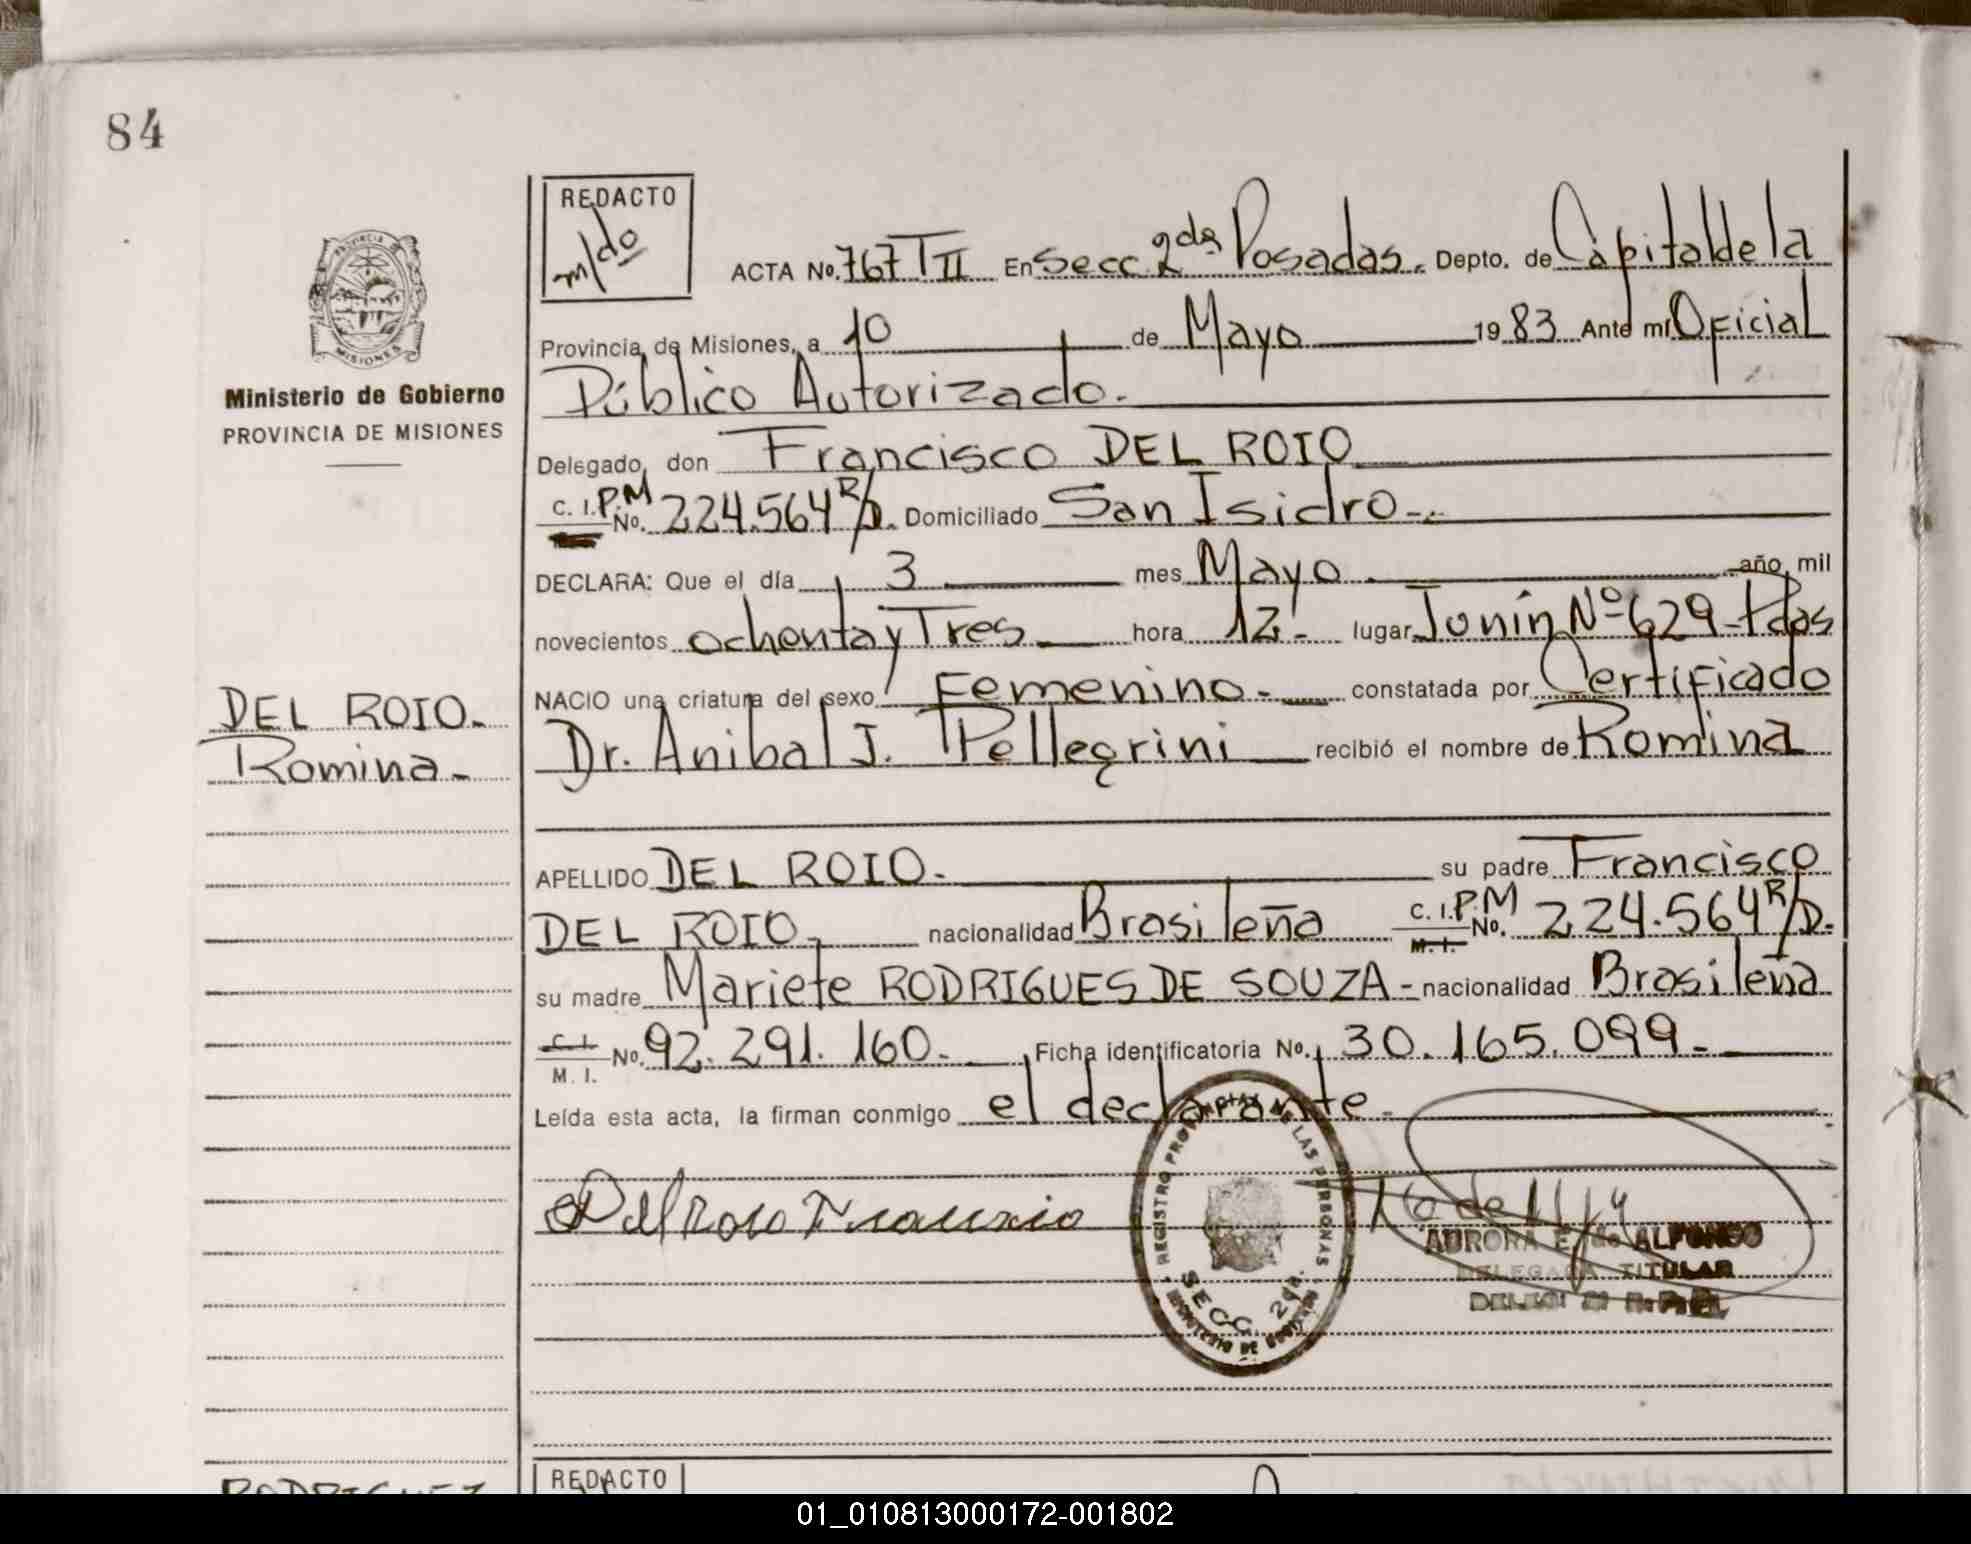 84
REDACTO
m/do
PROVINCIA DE
MISIONES
Ministerio de Gobierno
PROVINCIA DE MISIONES
ACTA No. 767 TII En Secc 2da Posadas. Depto. de Capital de la
Provincia de Misiones, a 10 de Mayo 1983 Ante mí Oficial
Público Autorizado.
Delegado, don Francisco DEL ROIO
C. I. P.M No. 224.564 R/D. Domiciliado San Isidro-.
DECLARA: Que el día 3 mes Mayo año mil
novecientos ochenta y Tres hora 12.- lugar Junín Nº 629-Pdas
NACIO una criatura del sexo Femenino.- constatada por Certificado
Dr. Anibal J. Pellegrini recibió el nombre de Romina
DEL ROIO.
Romina.-
APELLIDO DEL ROIO.- su padre Francisco
DEL ROIO, nacionalidad Brasileña C. I. P.M M. I. No. 224.564 R/D.
su madre Mariete RODRIGUES DE SOUZA - nacionalidad Brasileña
C. I. M. I. No. 92.291.160.- Ficha identificatoria No. 30.165.099.-
Leída esta acta, la firman conmigo el declarante.-
Del Roio Francisco
REGISTRO PROVINCIAL DE LAS PERSONAS
SECC. 2da.
MINISTERIO DE GOBIERNO
AURORA E. de ALFONSO
DELEGADA TITULAR
REDACTO
RODRIGUEZ
01_010813000172-001802